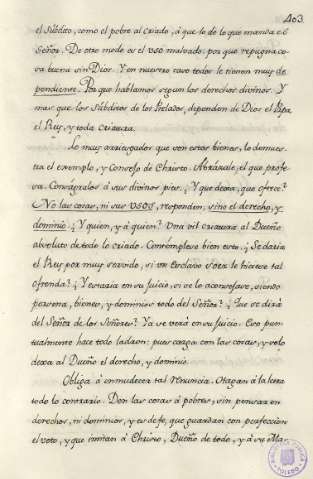 403
el Subdito, como el pobre al Criado, á que le dé lo que manda el
Señor. De otro modo es el uso malvado: por que repugna co-
sa buena sin Dios. Y en nuestro caso todos le tienen muy de-
pendiente. Por que hablamos segun los derechos divinos. Y
mas que los Subditos de los Prelados, dependen de Dios el Papa,
el Rey, y toda Criatura.
Lo muy arriesgados que son estos bienes, lo demues-
tra el exemplo, y Consejo de Christo. Abrázale, el que profe-
sa. Conságralos á sus divinos pies. ¿Y que dexa, que ofrece?
No las cosas, ni sus usos, responden, sino el derecho, y
dominio. ¿Y quien, y á quien? Una vil criatura al Dueño
absoluto de todo lo criado. Contémplese bien esto. ¿Se daría
el Rey por muy servido, si un Esclavo suyo le hiciese tal
ofrenda? ¿Y estaría en su juicio, si se lo aconsejase, siendo
persona, bienes, y dominios todo del Señor? ¿Que se dirá
del Señor de los Señores? Ya se verá en su Juicio. Eso pun-
tualmente hace todo ladron: pues carga con las cosas, y solo
dexa al Dueño el derecho, y dominio.
Obliga á enmudecer tal renuncia. Hagan á la letra
todo lo contrario. Den las cosas á pobres, sin pensar en
derechos, ni dominios, y es de fe, que guardan con perfección
el voto, y que imitan á Christo, Dueño de todo, y á su Ma-
TOLEDO